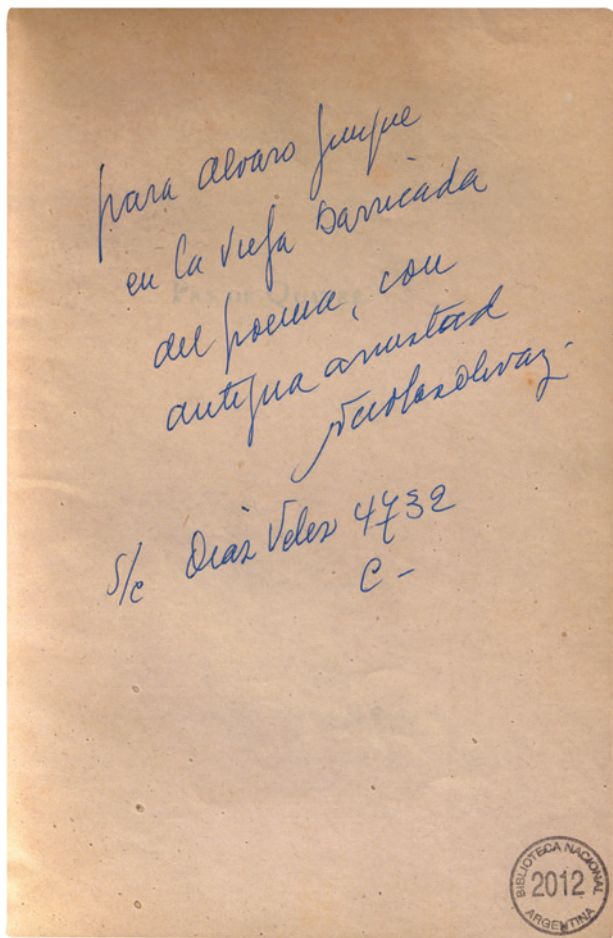 para alvaro Junque
en la vieja barricada
del poema, con
antigua amistad
Nicolas Olivari.
S/c Diaz Velez 4732
C -
BIBLIOTECA NACIONAL
2012
ARGENTINA